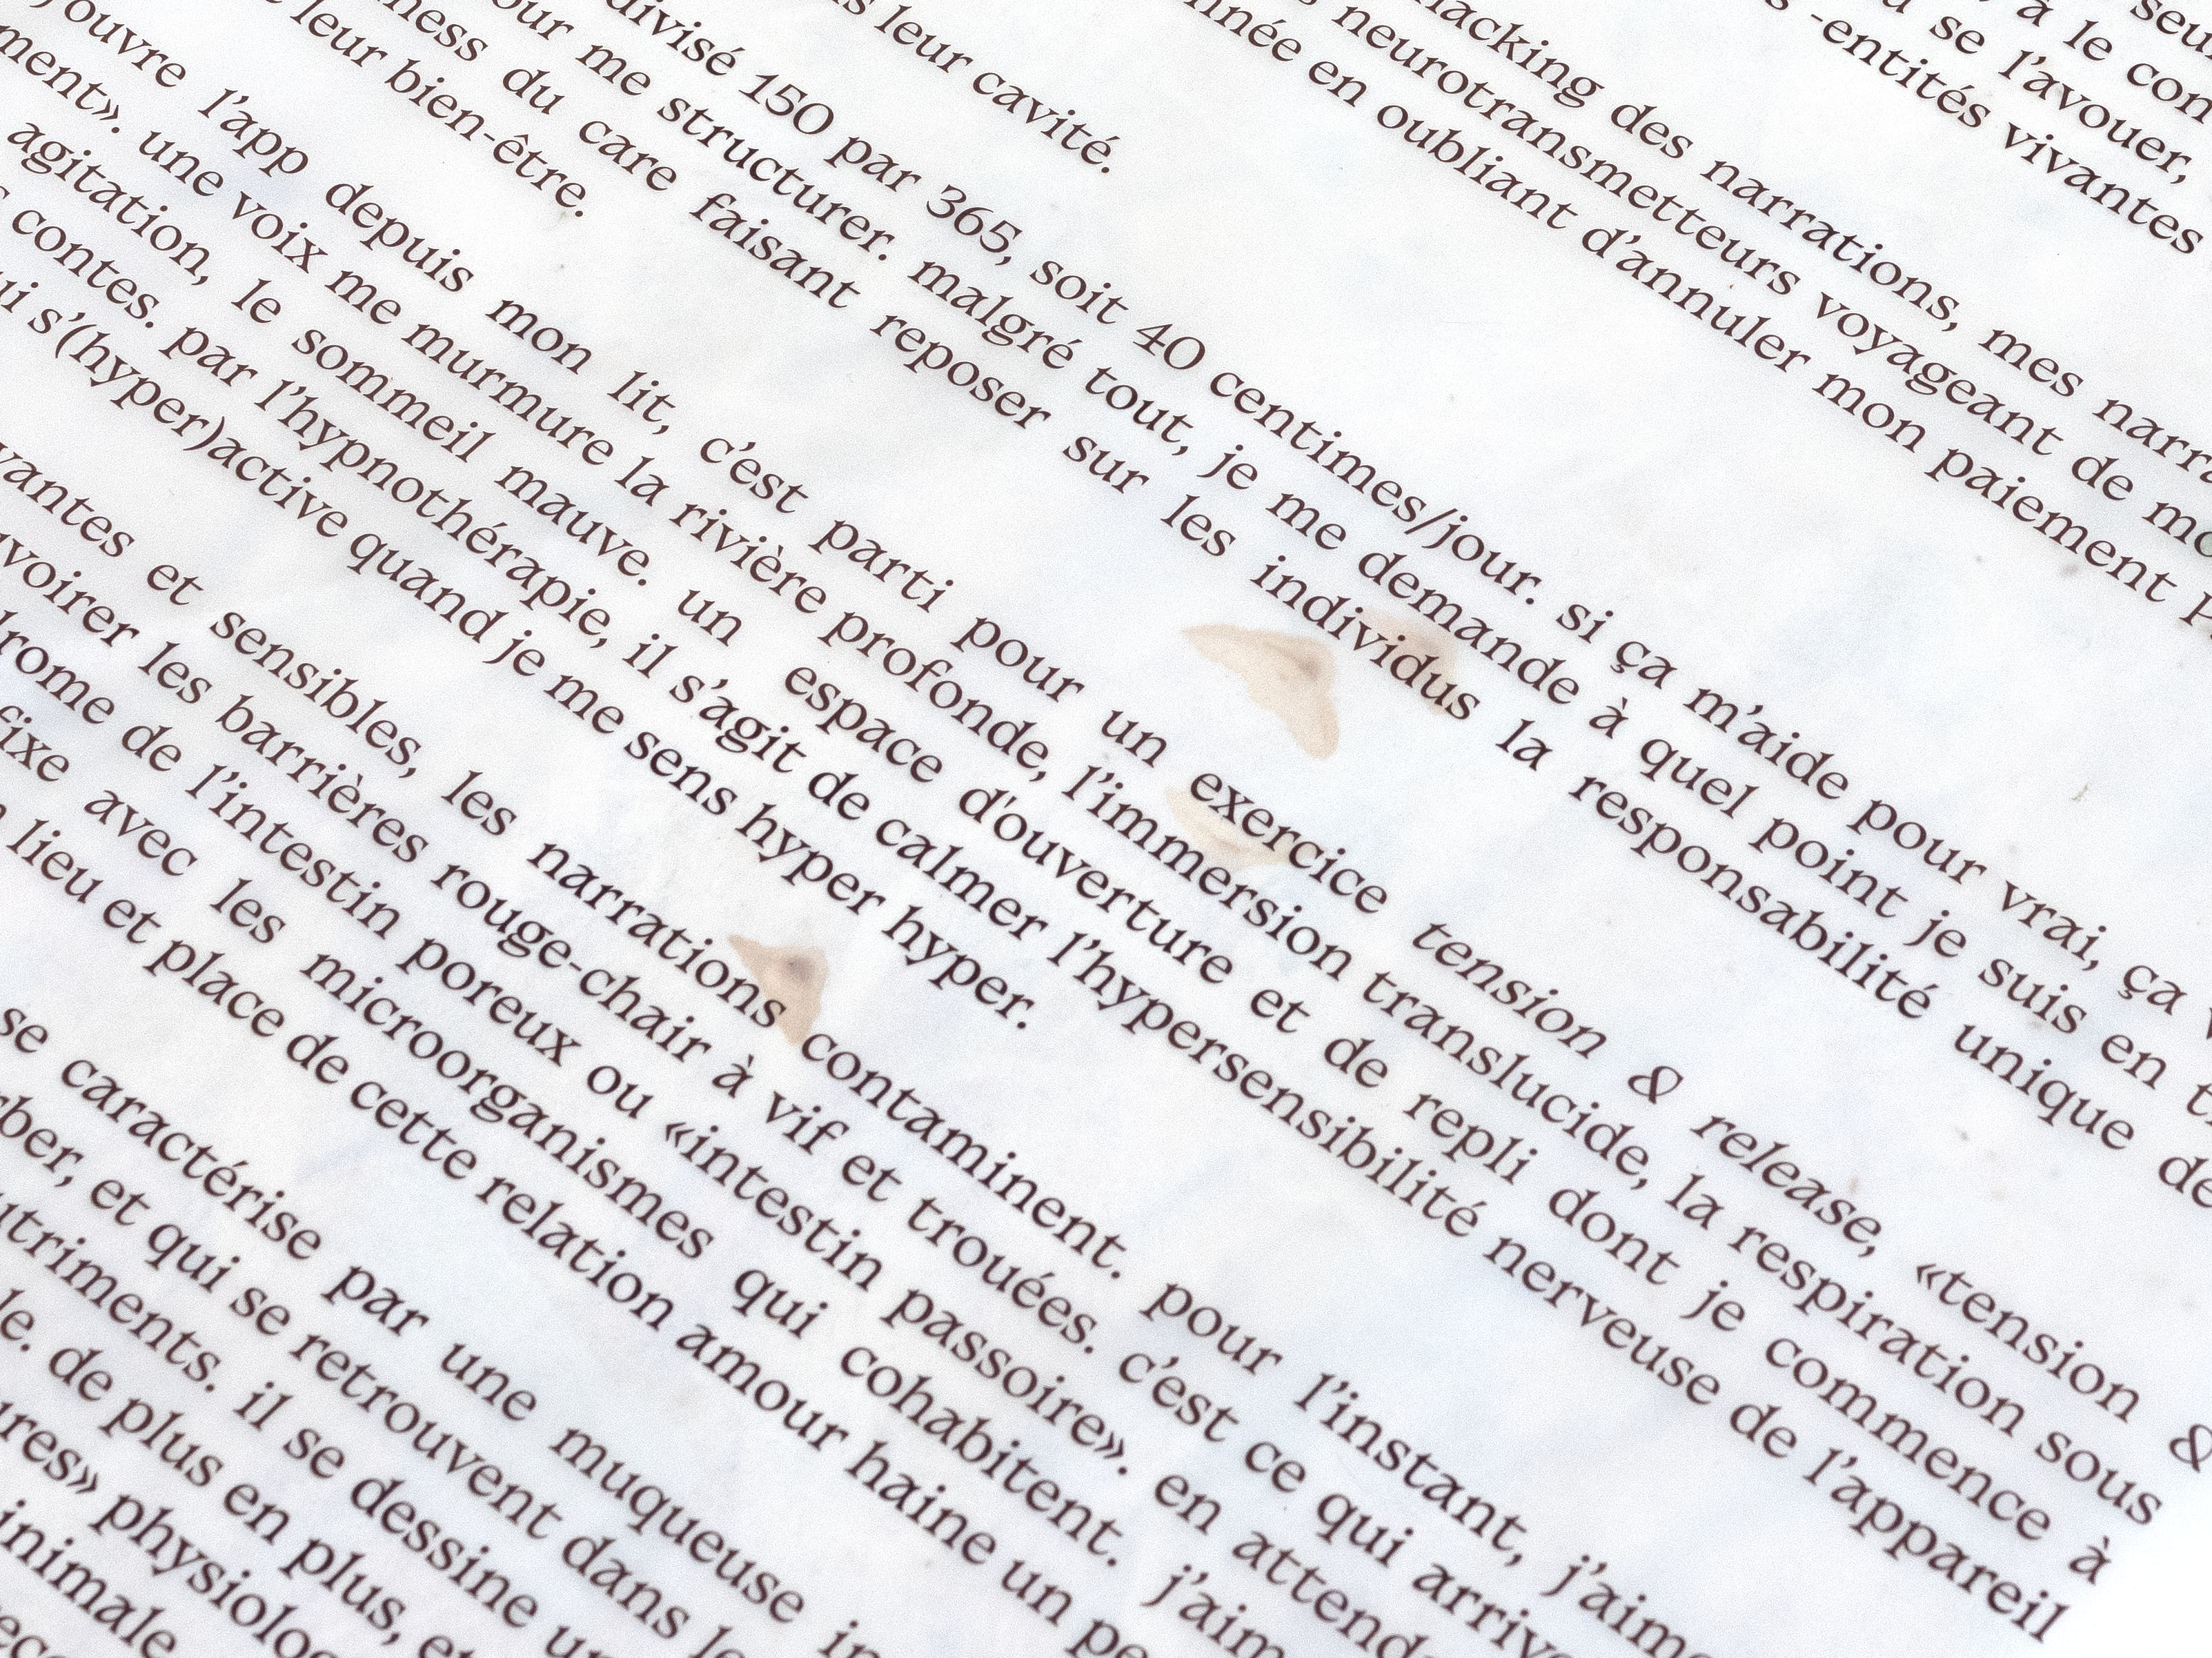 à le con
se l'avouer,
-entités vivantes
hacking des narrations, mes narra
neurotransmetteurs voyageant de mo
nnée en oubliant d'annuler mon paiement
leur cavité.
divisé 150 par 365, soit 40 centimes/jour. si ça m'aide pour vrai, ça
our me structurer. malgré tout, je me demande à quel point je suis en
ness du care faisant reposer sur les individus la responsabilité unique de
leur bien-être.
j'ouvre l'app depuis mon lit, c'est parti pour un exercice tension & release, «tension &
ment». une voix me murmure la rivière profonde, l'immersion translucide, la respiration sous
agitation, le sommeil mauve. un espace d'ouverture et de repli dont je commence à
contes. par l'hypnothérapie, il s'agit de calmer l'hypersensibilité nerveuse de l'appareil
ui s'(hyper)active quand je me sens hyper hyper.
vantes et sensibles, les narrations contaminent. pour l'instant, j'aime
voirer les barrières rouge-chair à vif et trouées. c'est ce qui arrive
drome de l'intestin poreux ou «intestin passoire». en attenda
fixe avec les microorganismes qui cohabitent. j'aim
lieu et place de cette relation amour haine un pe
se caractérise par une muqueuse in
ber, et qui se retrouvent dans le
utriments. il se dessine un
le. de plus en plus, et
ures» physiolog
inimale